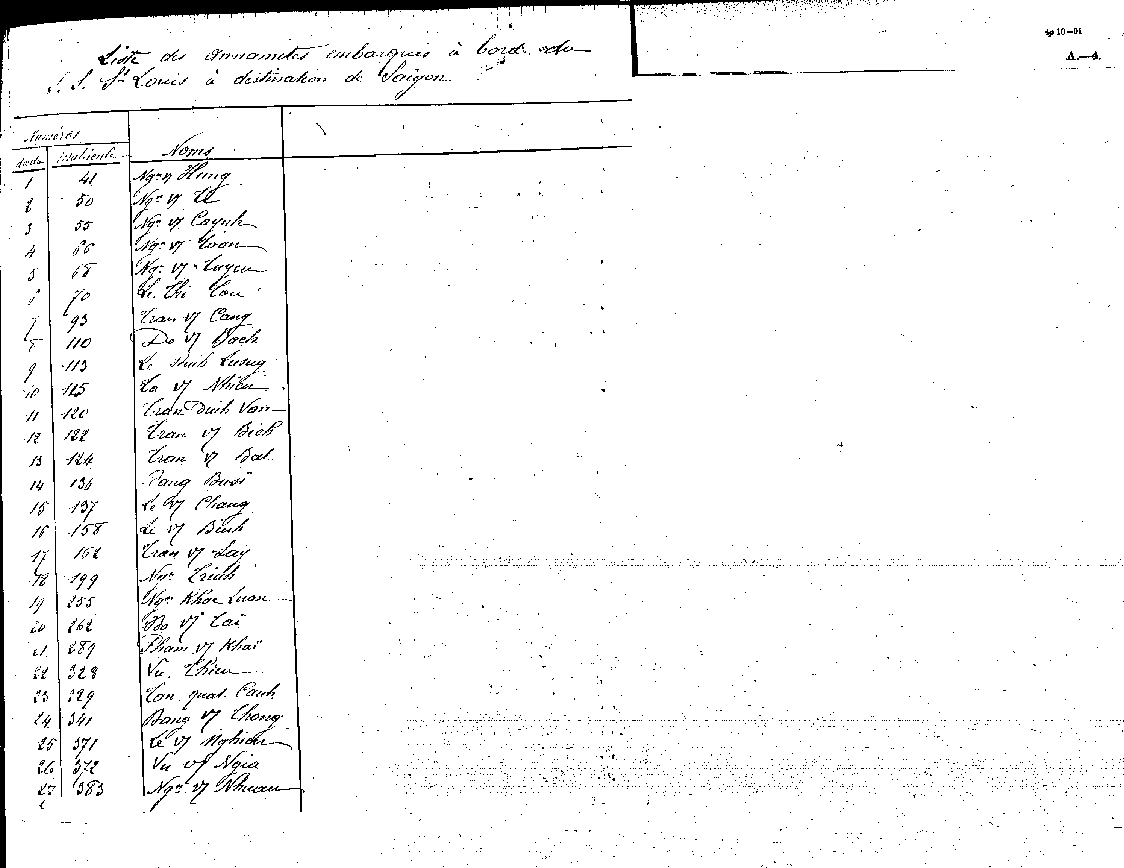 Liste des annamites embarqués à bord du
S.S. St Louis à destination de Saïgon
4p 10-01
A.—4.
Numéros
Noms
1 41 Ngn vj Hung
2 50 Ngn vj
3 55 Ngn vj
4 66 Ngn vj
5 68 Ngn vj
6 70 Le Thi
7 93 Tran vj Cang
8 110 Do vj Bach
9 113 Le Dinh Luong
10 115 vj Nhieu
11 120 Tran Dinh Van
12 122 Tran vj Bich
13 124 Tran vj Dat
14 136 Dang
15 137 Le vj Chang
16 158 Le vj Binh
17 162 Tran vj
18 199 Ngn Trinh
19 255 Ngn Khac Luan
20 262 vj Tai
21 289 Pham vj Khaï
22 328 Vu Thieu
23 329 Ton quat Canh
24 341 vj Thong
25 371 Le vj Nghieu
26 372 Vu vj Ngia
27 383 Ngn vj